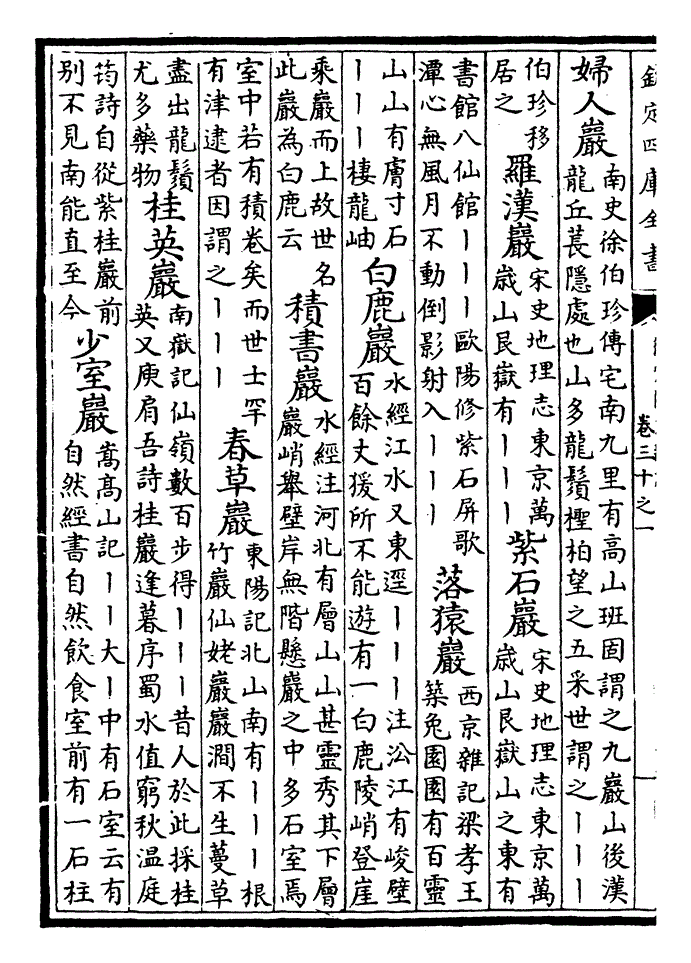 欽定四庫全書
卷三十之一
婦人巖
南史徐伯珍傳宅南九里有高山班固謂之九巖山後漢
龍丘萇隱處也山多龍鬚檉柏望之五采世謂之丨丨丨
伯珍移
居之
羅漢巖
宋史地理志東京萬
歲山艮嶽有丨丨丨
紫石巖
宋史地理志東京萬
歲山艮嶽山之東有
書館八仙館丨丨丨歐陽修紫石屏歌
潭心無風月不動倒影射入丨丨丨
落猿巖
西京雜記梁孝王
築兔園園有百靈
山山有膚寸石
丨丨丨棲龍岫
白鹿巖
水經江水又東逕丨丨丨注㳂江有峻壁
百餘丈猨所不能遊有一白鹿陵峭登崖
乘巖而上故世名
此巖為白鹿云
積書巖
水經注河北有層山山甚靈秀其下層
巖峭舉壁岸無階懸巖之中多石室焉
室中若有積卷矣而世士罕
有津逮者因謂之丨丨丨
春草巖
東陽記北山南有丨丨丨根
竹巖仙姥巖巖澗不生蔓草
盡出龍鬚
尤多藥物
桂英巖
南嶽記仙嶺數百步得丨丨丨昔人於此採桂
英又庾肩吾詩桂巖逢暮序蜀水值窮秋温庭
筠詩自從紫桂巖前
别不見南能直至今
少室巖
嵩髙山記丨丨大丨中有石室云有
自然經書自然飲食室前有一石柱